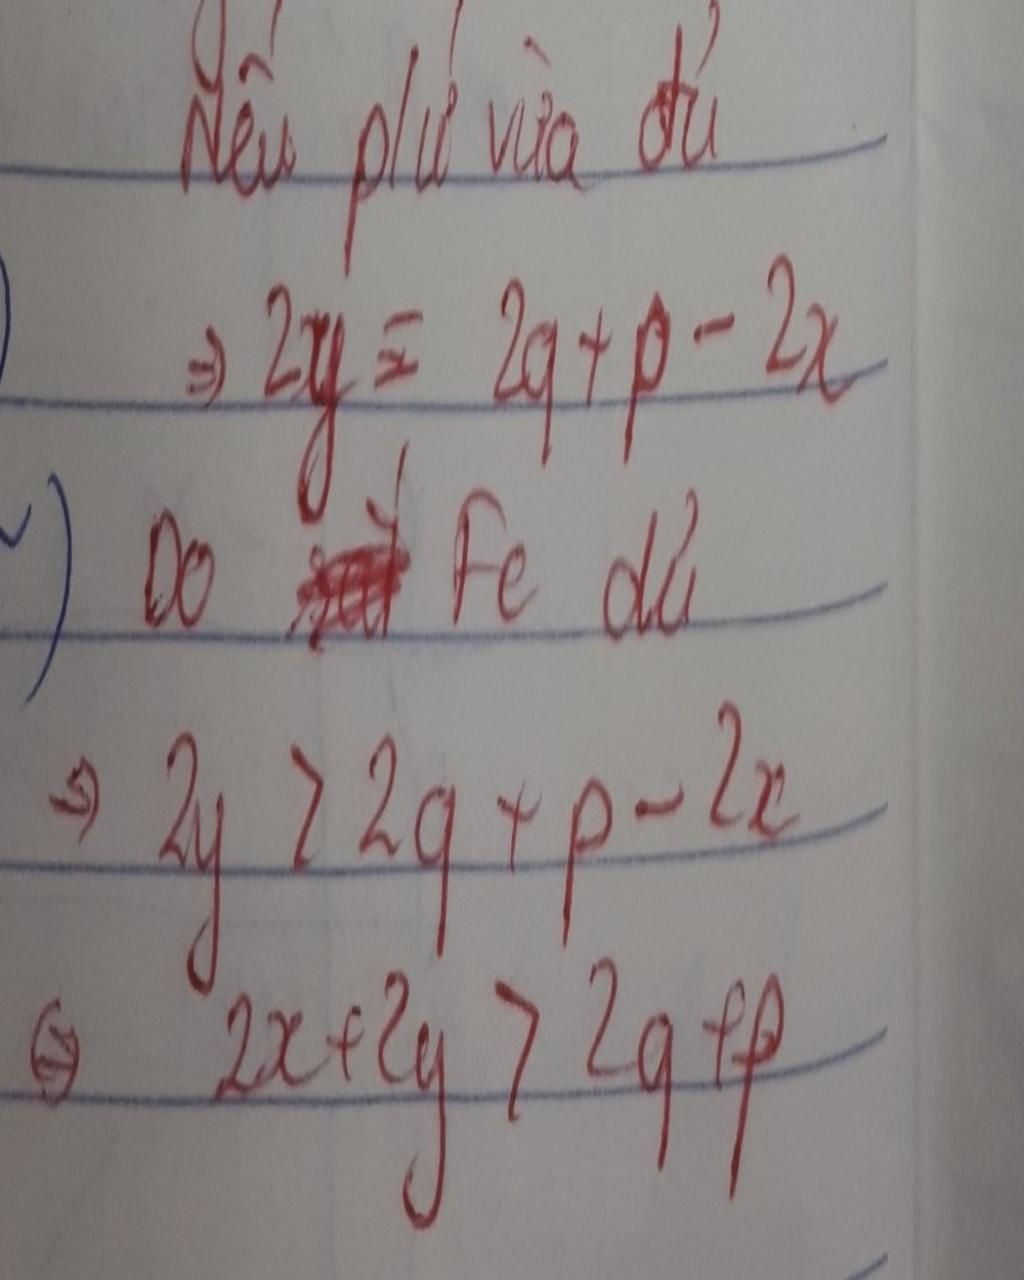 Nếu p/ứ vừa đủ
⇒ 2y = 2q + p - 2x
Do Fe dư
⇒ 2y > 2q + p - 2x
⇔ 2x + 2y > 2q + p